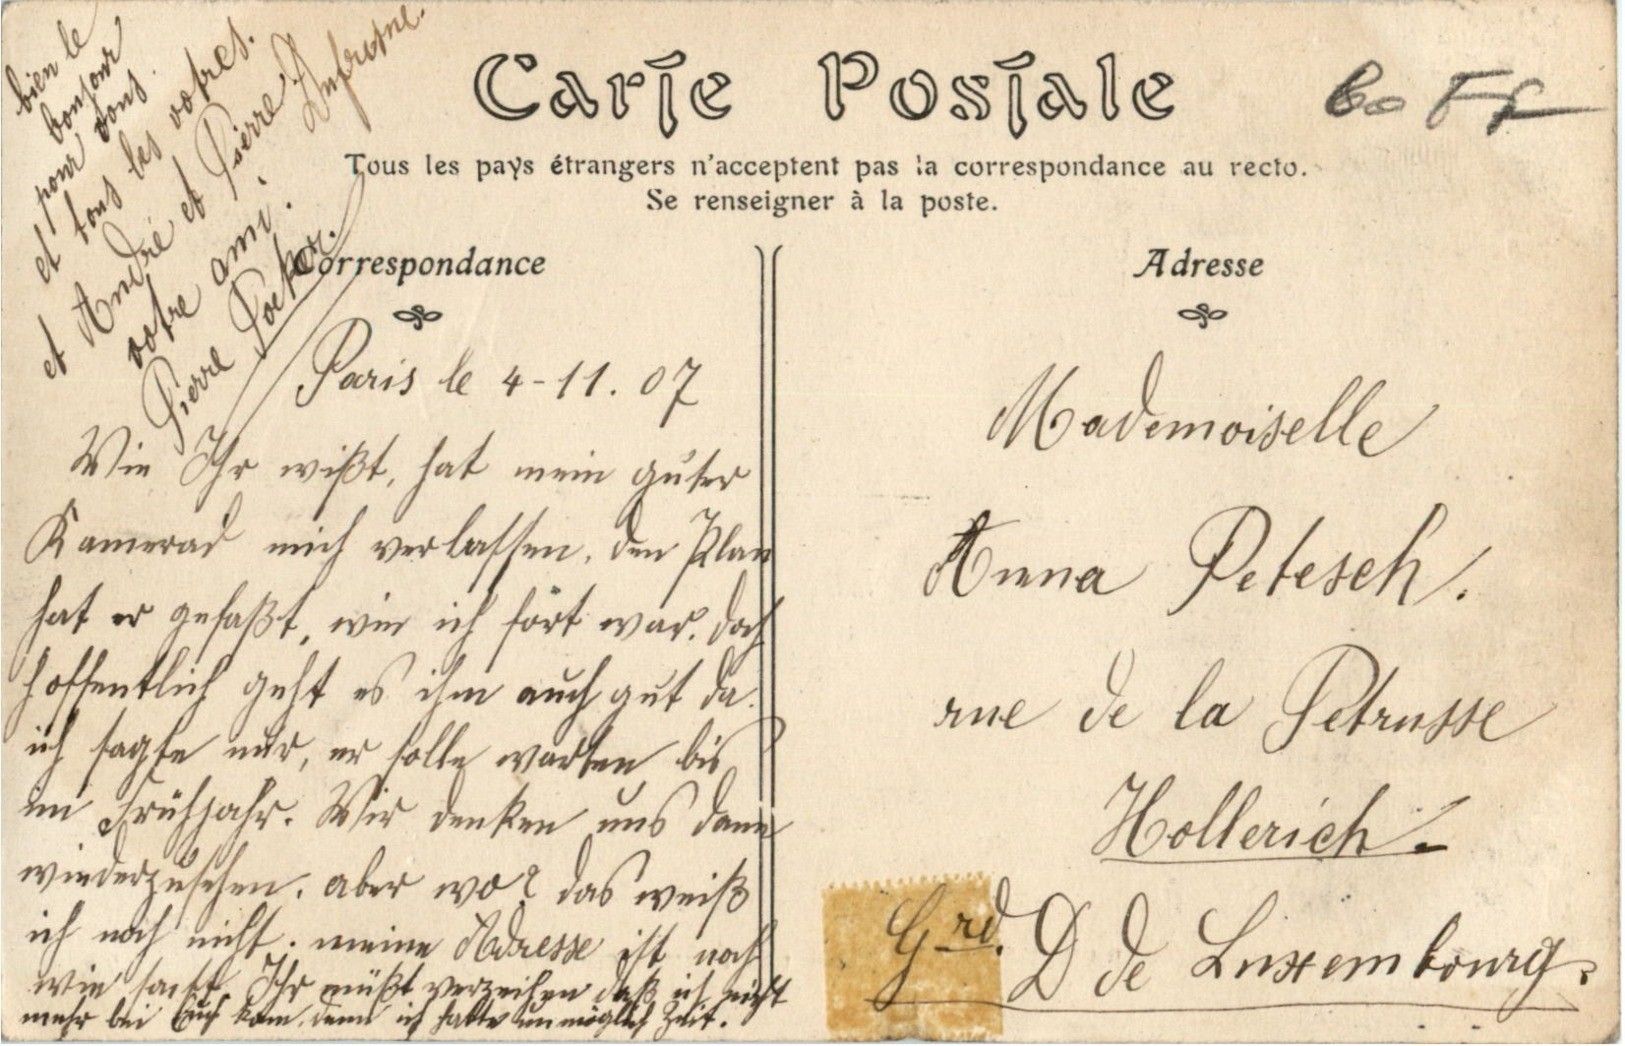 Carte Postale
60 Ff
Tous les pays étrangers n'acceptent pas la correspondance au recto.
Se renseigner à la poste.
Correspondance
Adresse
Paris le 4-11.07
Wie Ihr wißt, hat mein guter
Kamerad mich verlassen. den Plan
hat er gefaßt, wie ich fort war. doch
hoffentlich geht es ihm auch gut da.
ich sagte nur, er solle warten bis
im Frühjahr. Wir denken uns dann
wiederzusehen. aber wo? das weiß
ich noch nicht. meine Adresse ist noch
wie sonst. Ihr müßt verzeihen daß ich nicht
mehr bei Euch kam. denn ich hatte unmöglich Zeit.
bien le
bonjour
pour vous
et tous les votres.
et André et Pierre Dufresne.
votre ami.
Pierre
Mademoiselle
Anna Petesch.
rue de la Petrusse
Hollerich.
Grd. D de Luxembourg.